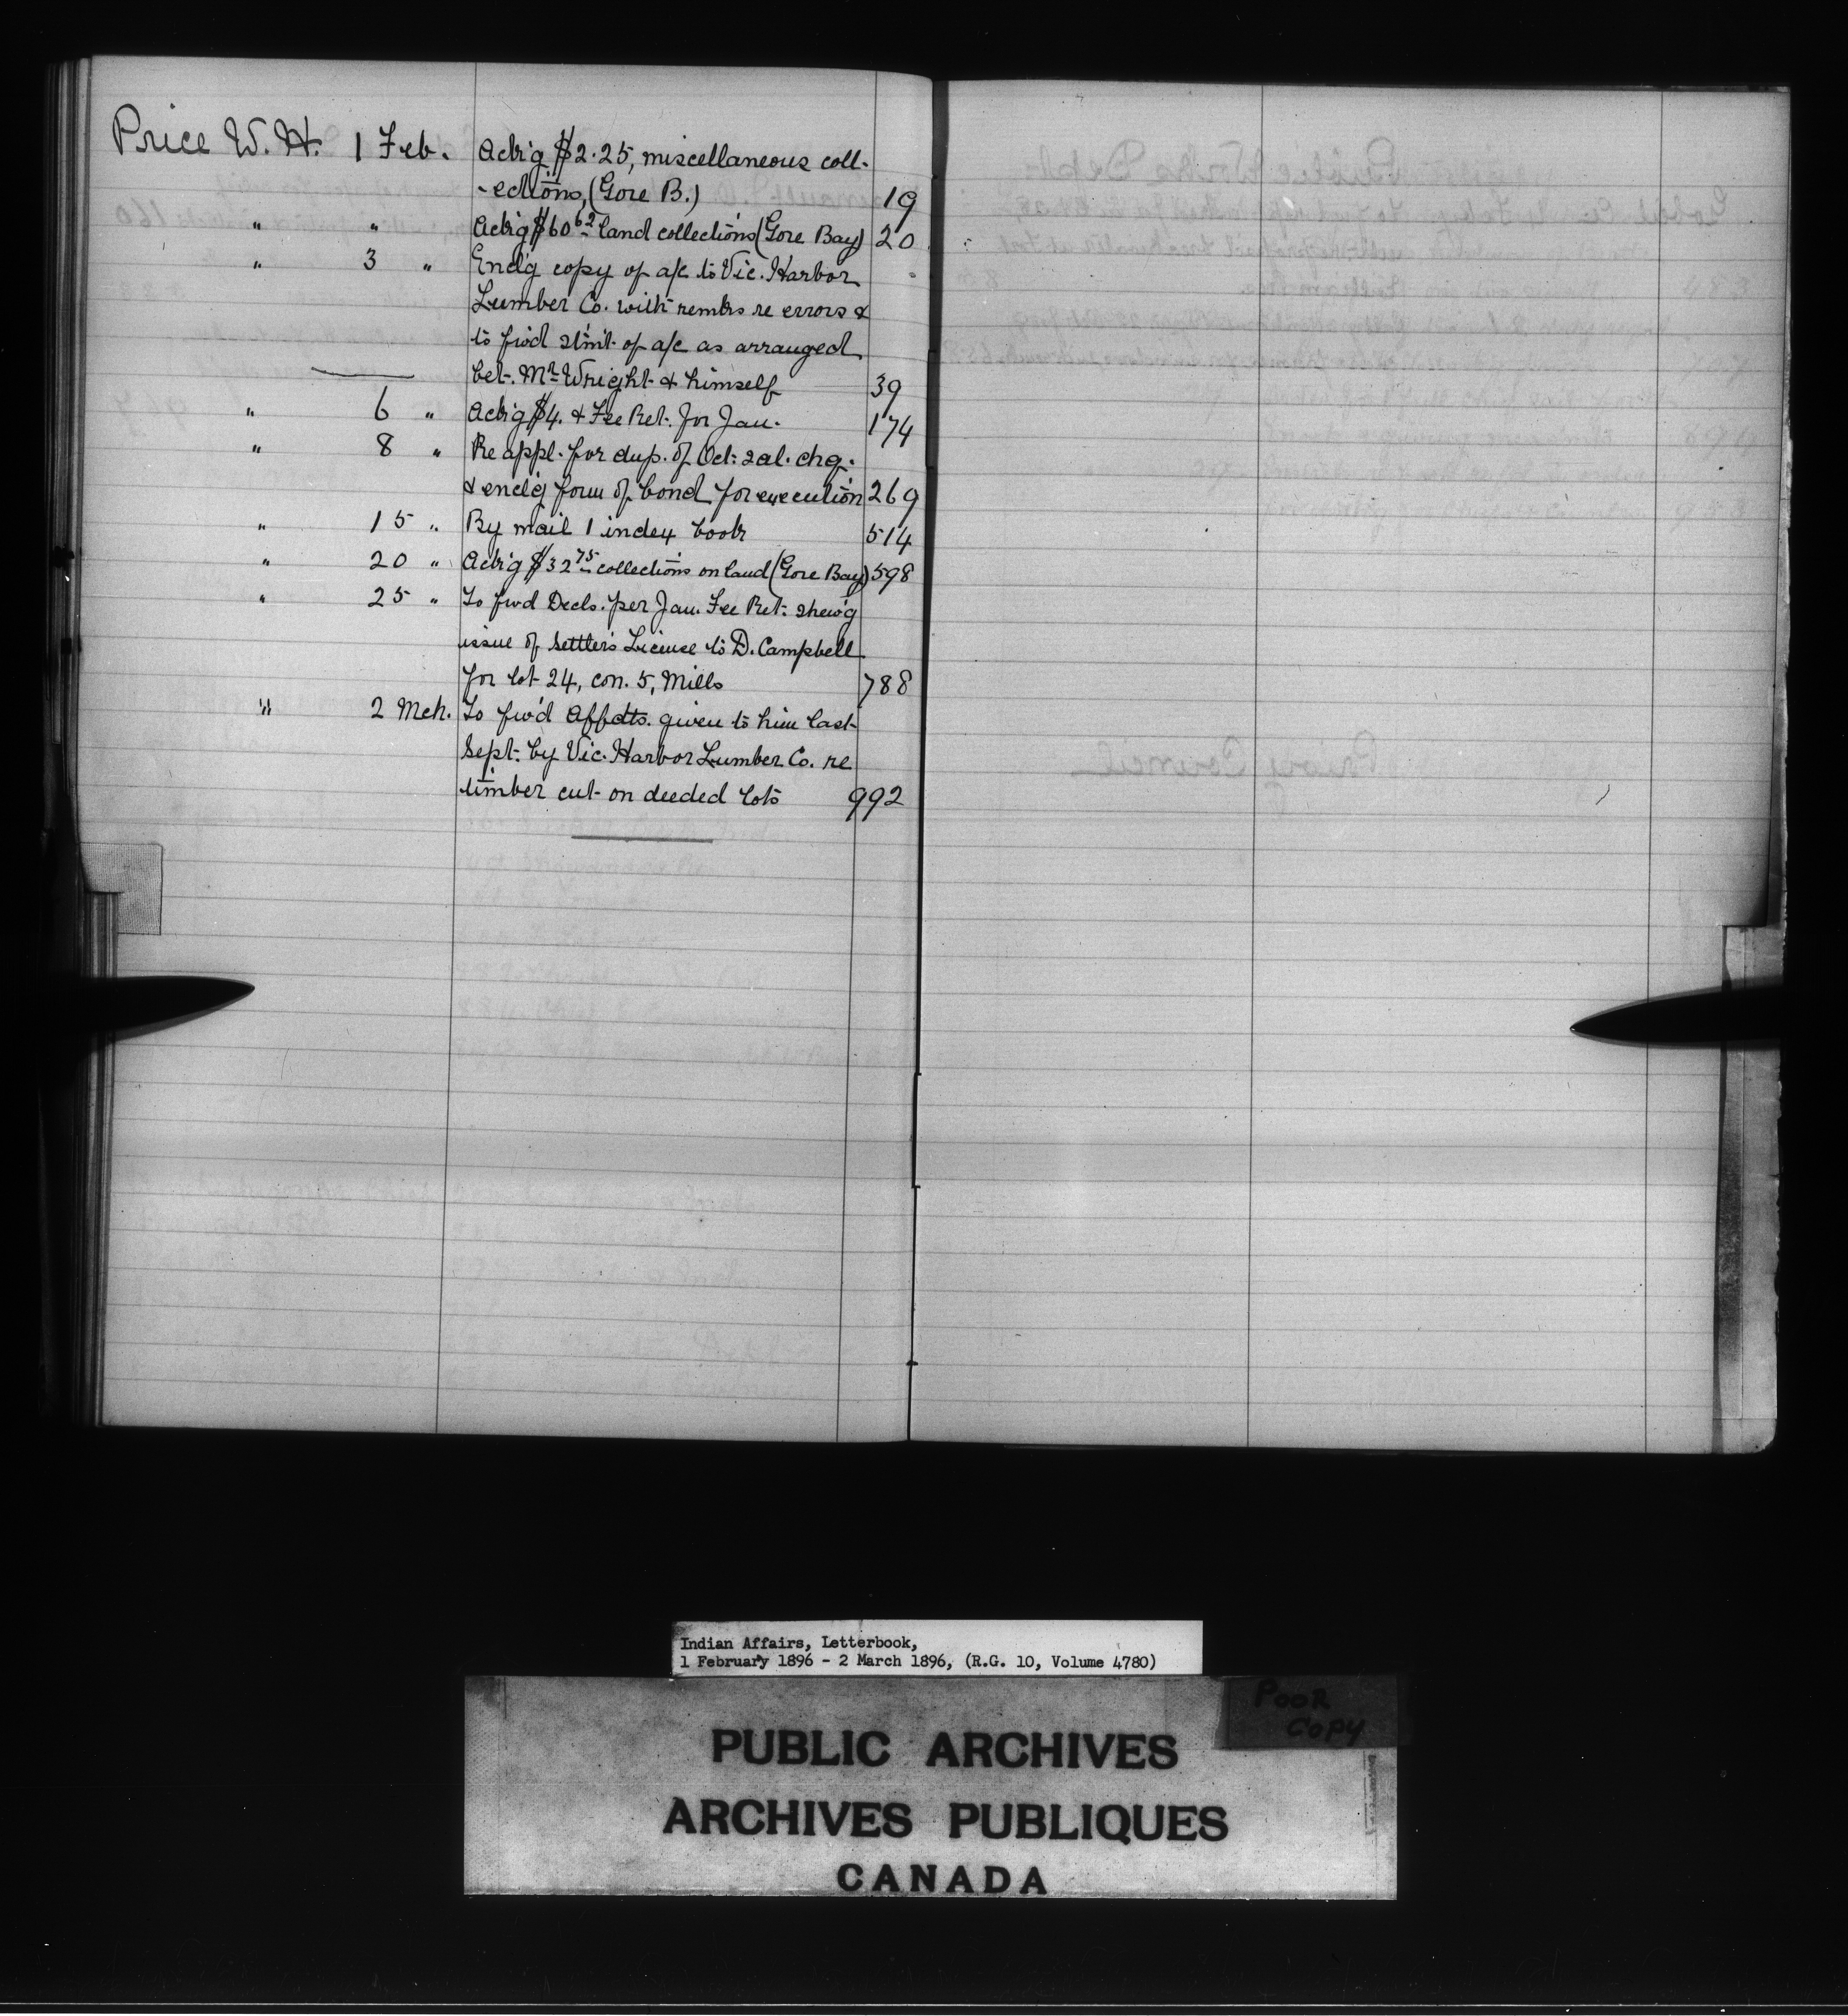 Price W. H. 1 Feb. Ack'g $2.25, miscellaneous coll-
-ections, (Gore B.) 19
" " Ack'g $60 62 land collections (Gore Bay) 20
" 3 " Encl'g copy of a/c to Vic. Harbor
Lumber Co. with remks re errors &
to fw'd stm't of a/c as arranged
bet. Mr Wright & himself 39
" 6 " Ack'g $4. & Fee Ret. for Jan. 174
" 8 " Re appl. for dup. of Oct. sal. chq.
& encl'g form of bond for execution 269
" 15 " By mail 1 index book 514
" 20 " Ack'g $32 75 collections on land (Gore Bay) 598
" 25 " To fwd Decls. per Jan. Fee Ret. shew'g
issue of Settler's License to D. Campbell
for lot 24, con. 5, Mills 788
" 2 Mch. To fw'd Affdts. given to him last
Sept. by Vic. Harbor Lumber Co. re
timber cut on deeded lots 992
Indian Affairs, Letterbook,
1 February 1896 - 2 March 1896, (R.G. 10, Volume 4780)
POOR
COPY
PUBLIC ARCHIVES
ARCHIVES PUBLIQUES
CANADA